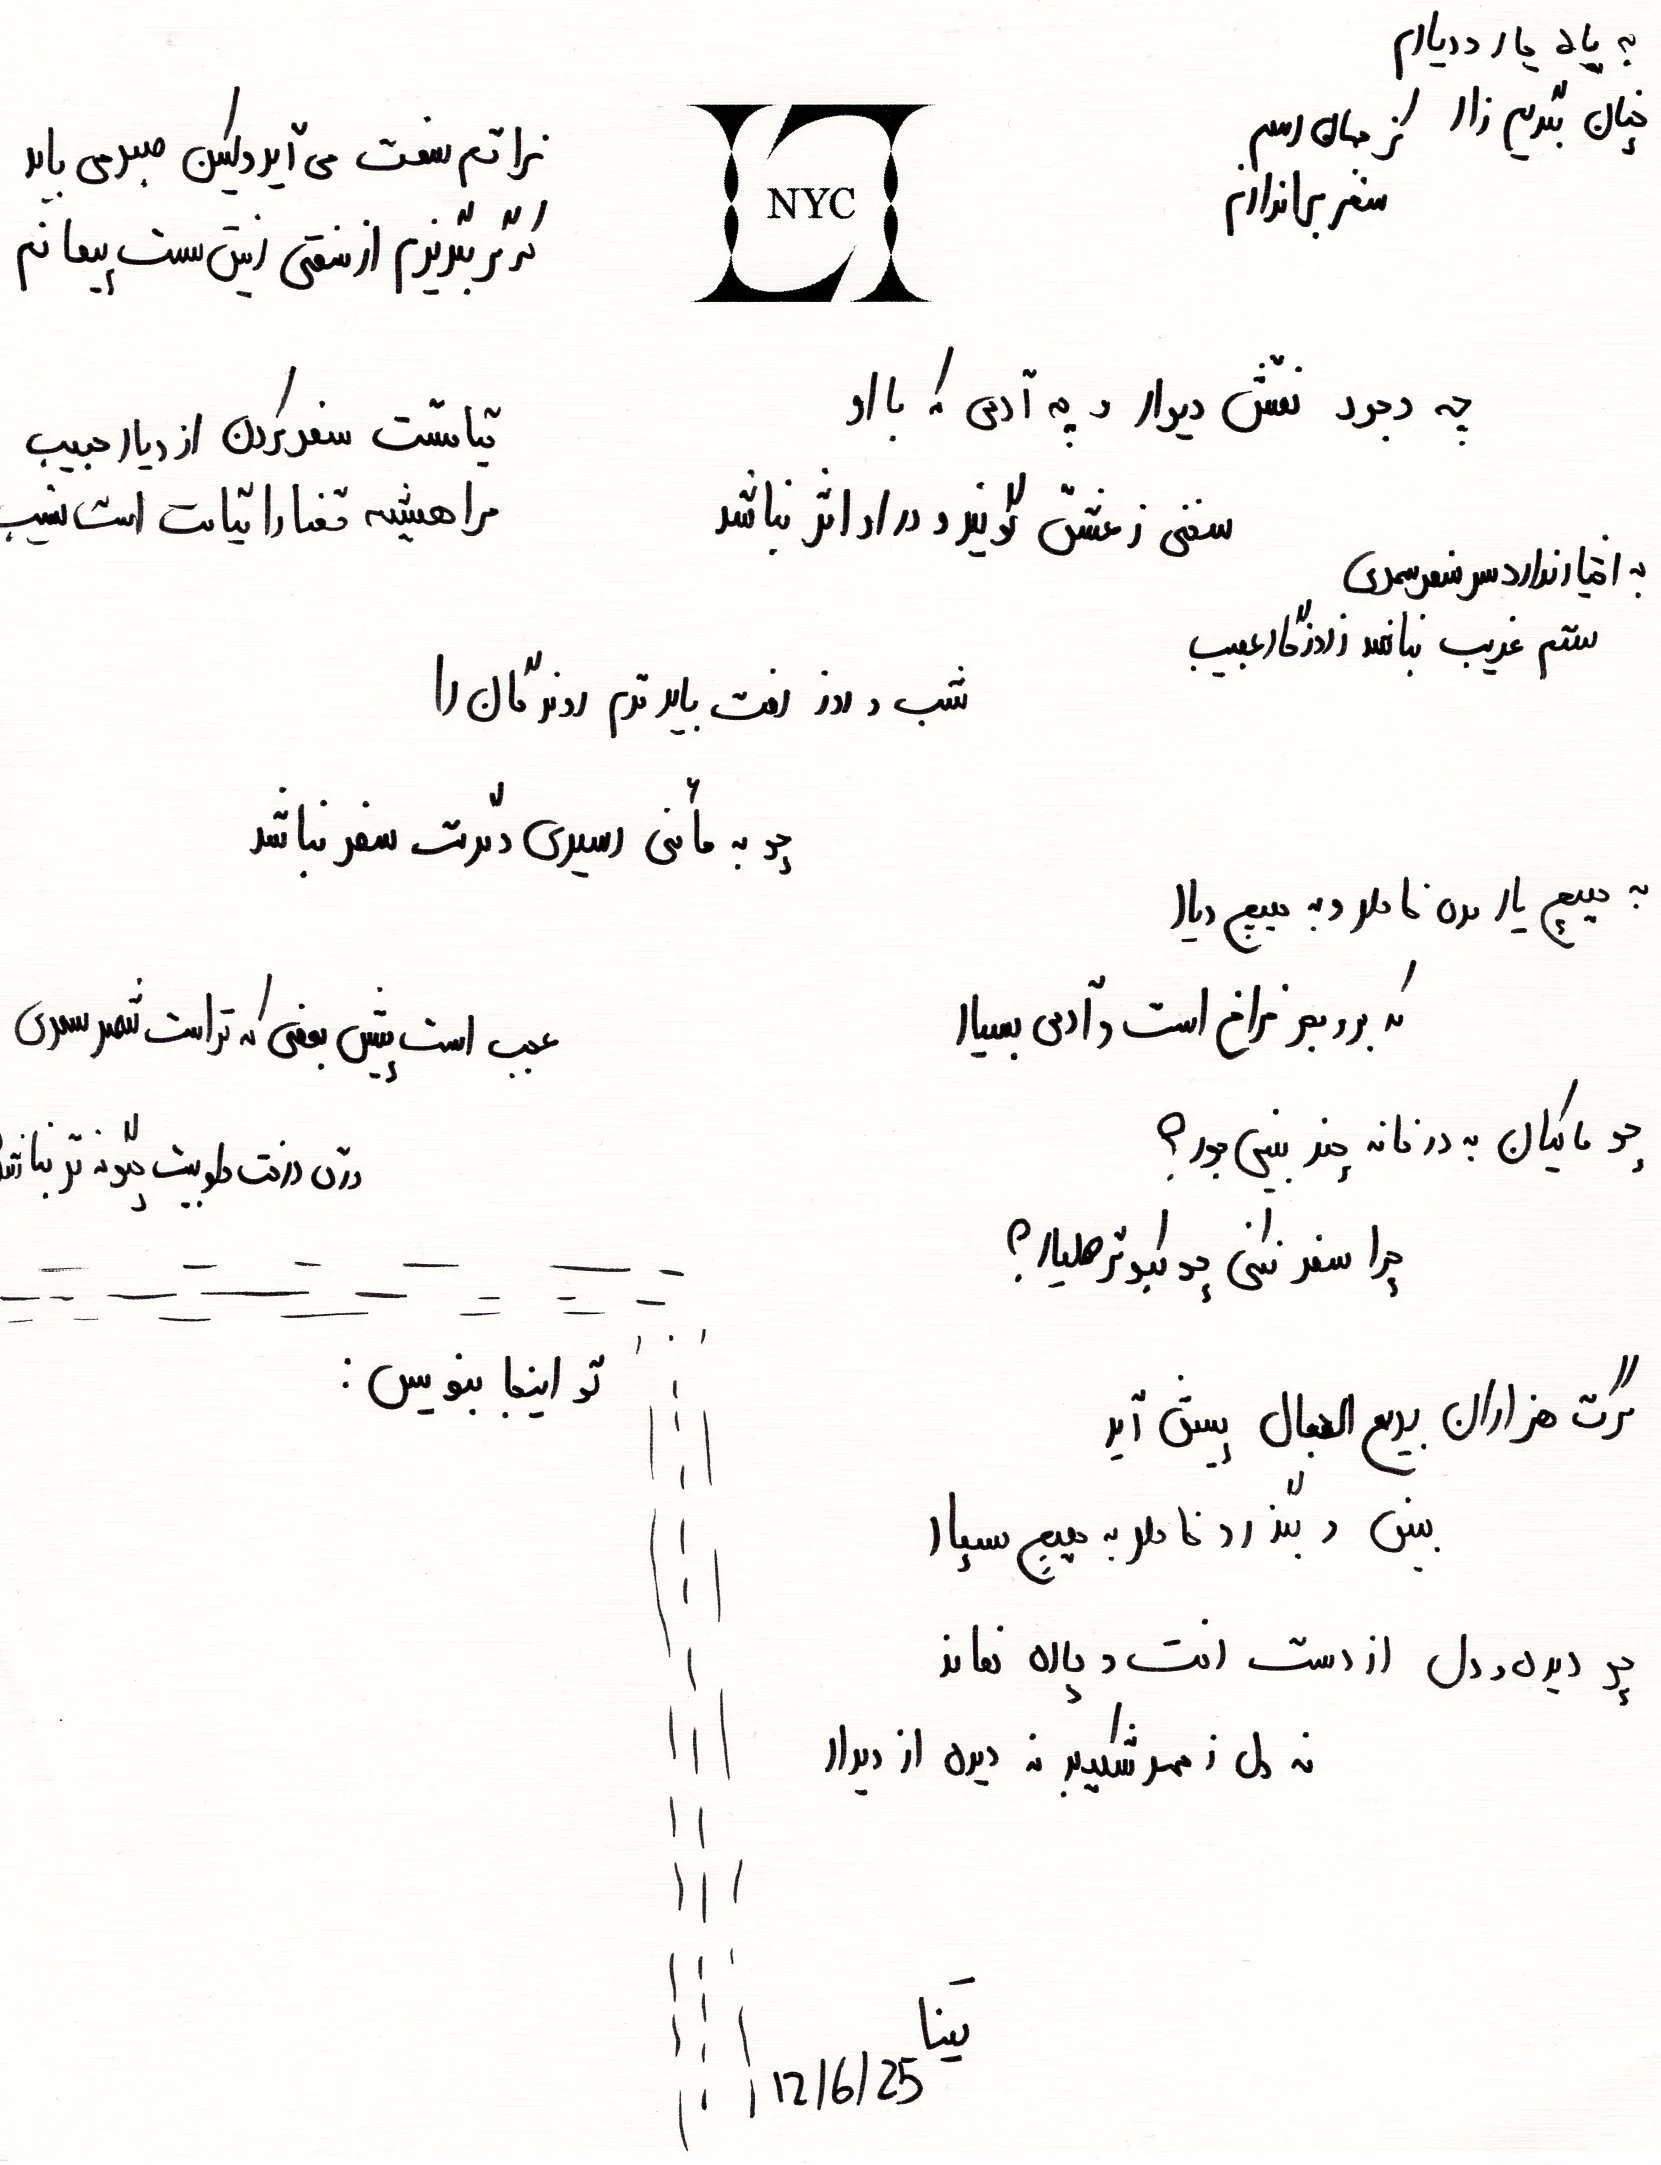 به یاد یار و دیارم
چنان بگریم زار کز جهان رسم
سفر براندازم
فراقم سخت می آید ولیکن صبر می باید
که گر بگریزم از سختی رفیق سست پیمانم
NYC
چه وجود نقش دیوار و چه آدمی که با او
سخنی ز عشق گویند و در او اثر نباشد
قیامتست سفر کردن از دیار حبیب
مرا همیشه قضا را قیامت است نصیب
به اختیار ندارد سر سفر سعدی
ستم غریب نباشد ز روزگار عجیب
شب و روز رفت باید قدم روندگان را
چو به مأمنی رسیدی دگرت سفر نباشد
به هیچ یار مده خاطر و به هیچ دیار
که بر و بحر فراخ است و آدمی بسیار
عجب است پیش بعضی که تر است شعر سعدی
ورق درخت طوبیست چگونه تر نباشد
چو ماکیان به در خانه چند بینی جور؟
چرا سفر نکنی چو کبوتر طیار؟
گرت هزاران بدیع الجمال پیش آید
ببین و بگذر و خاطر به هیچ سپار
چو دیده و دل از دست رفت و چاره نماند
نه دل ز مهر شکیبد نه دیده از دیدار
تو اینجا بنویس :
یَنا
12/6/25